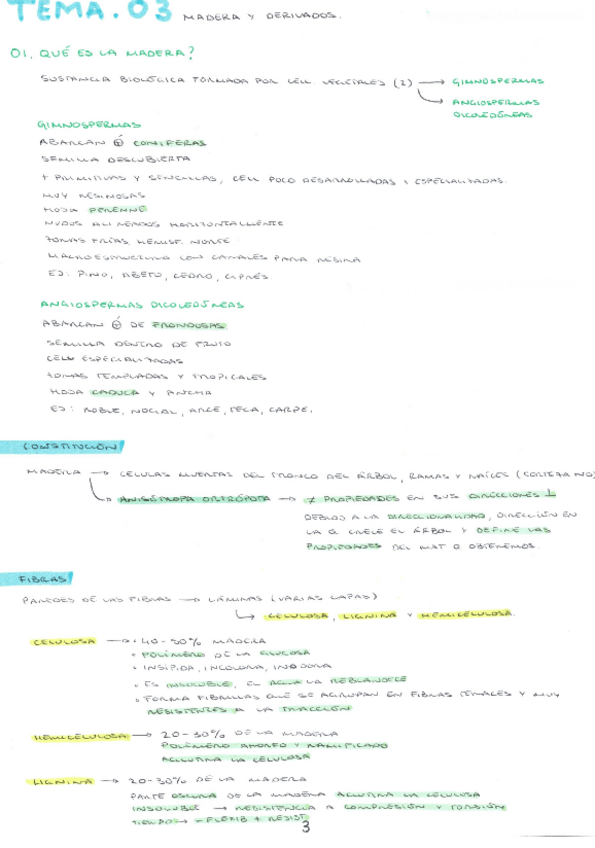 TEMA.03 MADERA Y DERIVADOS.
01. QUÉ ES LA MADERA?
SUSTANCIA BIOLÓGICA FORMADA POR CÉL. VEGETALES (2) → GIMNOSPERMAS
→ ANGIOSPERMAS
DICOLEDÓNEAS
GIMNOSPERMAS
ABARCAN CONÍFERAS
SEMILLA DESCUBIERTA
+ PRIMITIVAS Y SENCILLAS, CÉLL POCO DESARROLLADAS Y ESPECIALIZADAS.
MUY RESINOSAS
HOJA PERENNE
NUDOS ALINEADOS HORIZONTALMENTE
ZONAS FRÍAS, HEMISF. NORTE
MACROESTRUCTURA CON CANALES PARA RESINA
EJ: PINO, ABETO, CEDRO, CIPRÉS
ANGIOSPERMAS DICOLEDÓNEAS
ABARCAN DE FRONDOSAS
SEMILLA DENTRO DE FRUTO
CÉLL ESPECIALIZADAS
ZONAS TEMPLADAS Y TROPICALES
HOJA CADUCA Y ANCHA
EJ: ROBLE, NOGAL, ARCE, TECA, CARPE.
CONSTITUCIÓN
MADERA → CÉLULAS MUERTAS DEL TRONCO DEL ÁRBOL, RAMAS Y RAÍCES (CORTEZA NO)
→ ANISÓTROPA ORTRÓPOTA → ≠ PROPIEDADES EN SUS DIRECCIONES ⊥
DEBIDO A LA DIRECCIONALIDAD, DIRECCIÓN EN
LA Q CRECE EL ÁRBOL Y DEFINE LAS
PROPIEDADES DEL MAT Q OBTENEMOS.
FIBRAS
PAREDES DE LAS FIBRAS → LÁMINAS (VARIAS CAPAS)
→ CELULOSA, LIGNINA Y HEMICELULOSA.
CELULOSA → • 40-50% MADERA
• POLÍMERO DE LA GLUCOSA
• INSÍPIDA, INCOLORA, INODORA
• ES INSOLUBLE, EL AGUA LA REBLANDECE
• FORMA FIBRILLAS QUE SE AGRUPAN EN FIBRAS TENACES Y MUY
RESISTENTES A LA TRACCIÓN
HEMICELULOSA → 20-30% DE LA MADERA
POLÍMERO AMORFO Y RAMIFICADO
AGLUTINA LA CELULOSA
LIGNINA → 20-30% DE LA MADERA
PARTE OSCURA DE LA MADERA AGLUTINA LA CELULOSA
INSOLUBLE → RESISTENCIA A COMPRESIÓN Y TORSIÓN
TIEMPO → - FLEXIB + RESIST
3